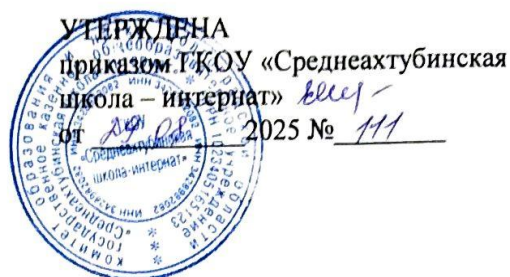 УТЕРЖДЕНА
приказом ГКОУ «Среднеахтубинская
школа – интернат»
от 29 08 2025 № 111
«Среднеахтубинская
школа-интернат»